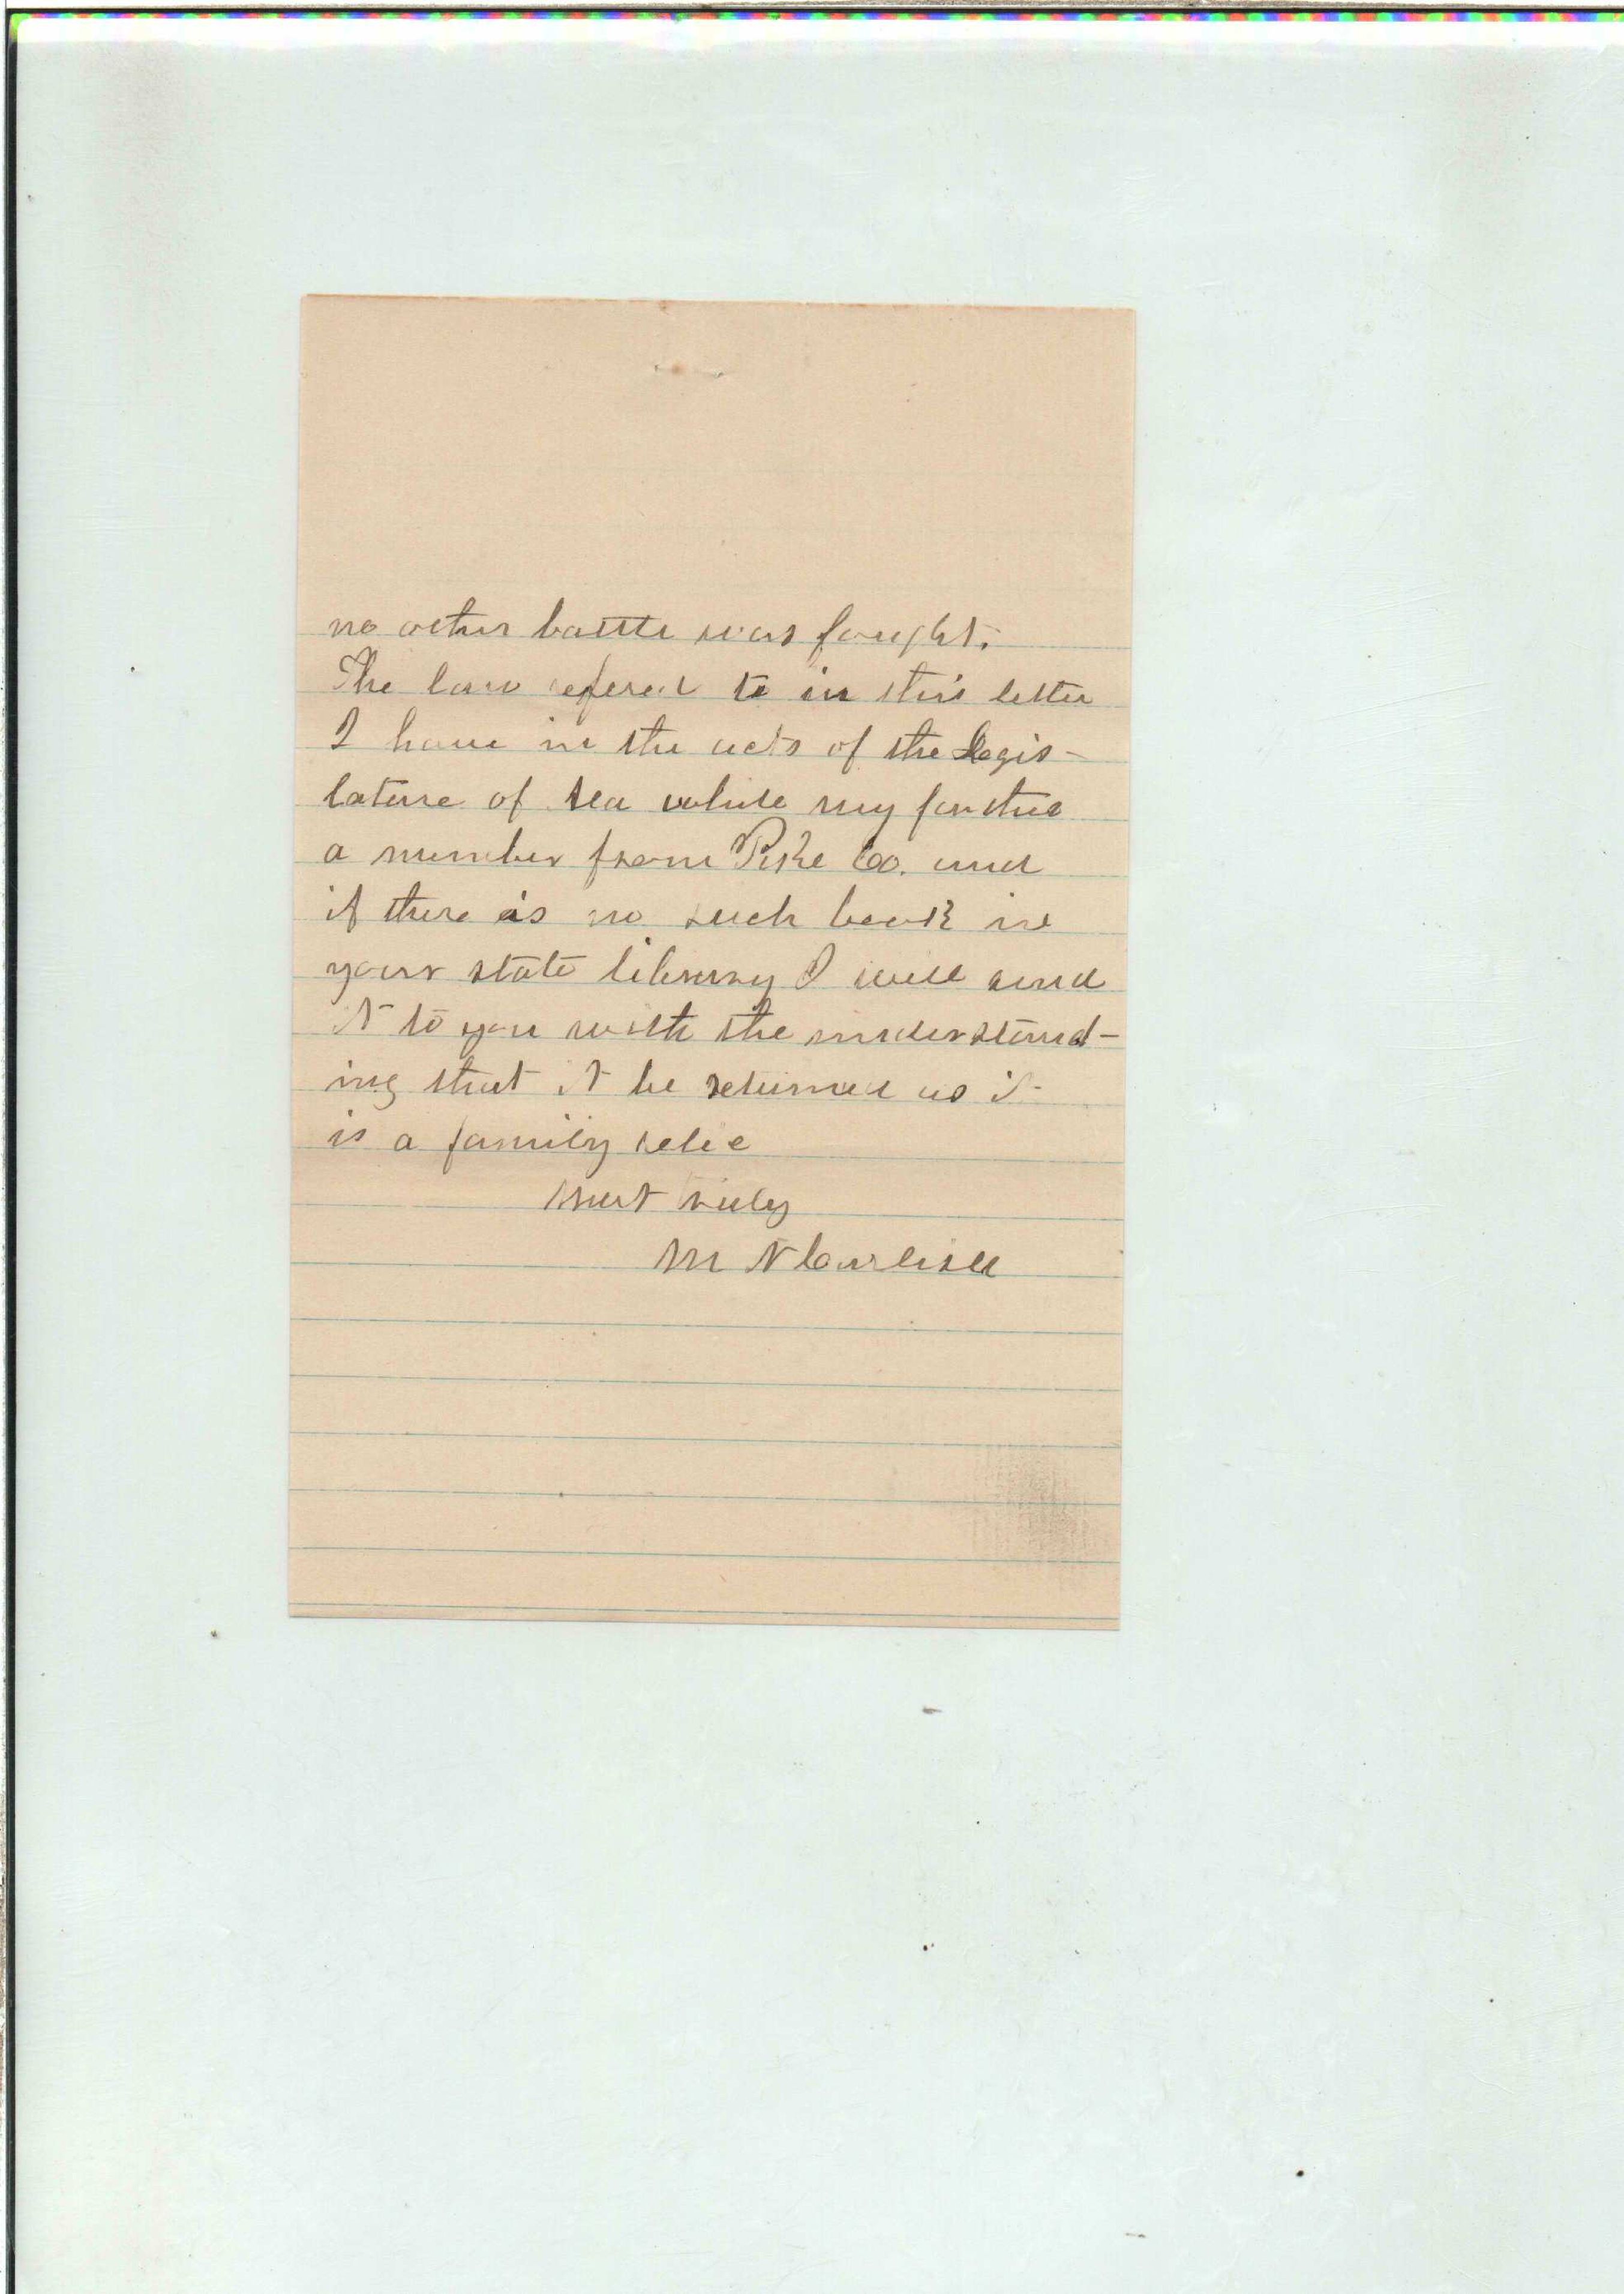 no other battle was fought.
The law refered to in this letter
I have in the acts of the Legis-
lature of while my father
a member from Pike Co. and
if there is no such book in
your state library I will send
it to you with the understand-
ing that it be returned as it
is a family relic
Most truly
M N Carlisle